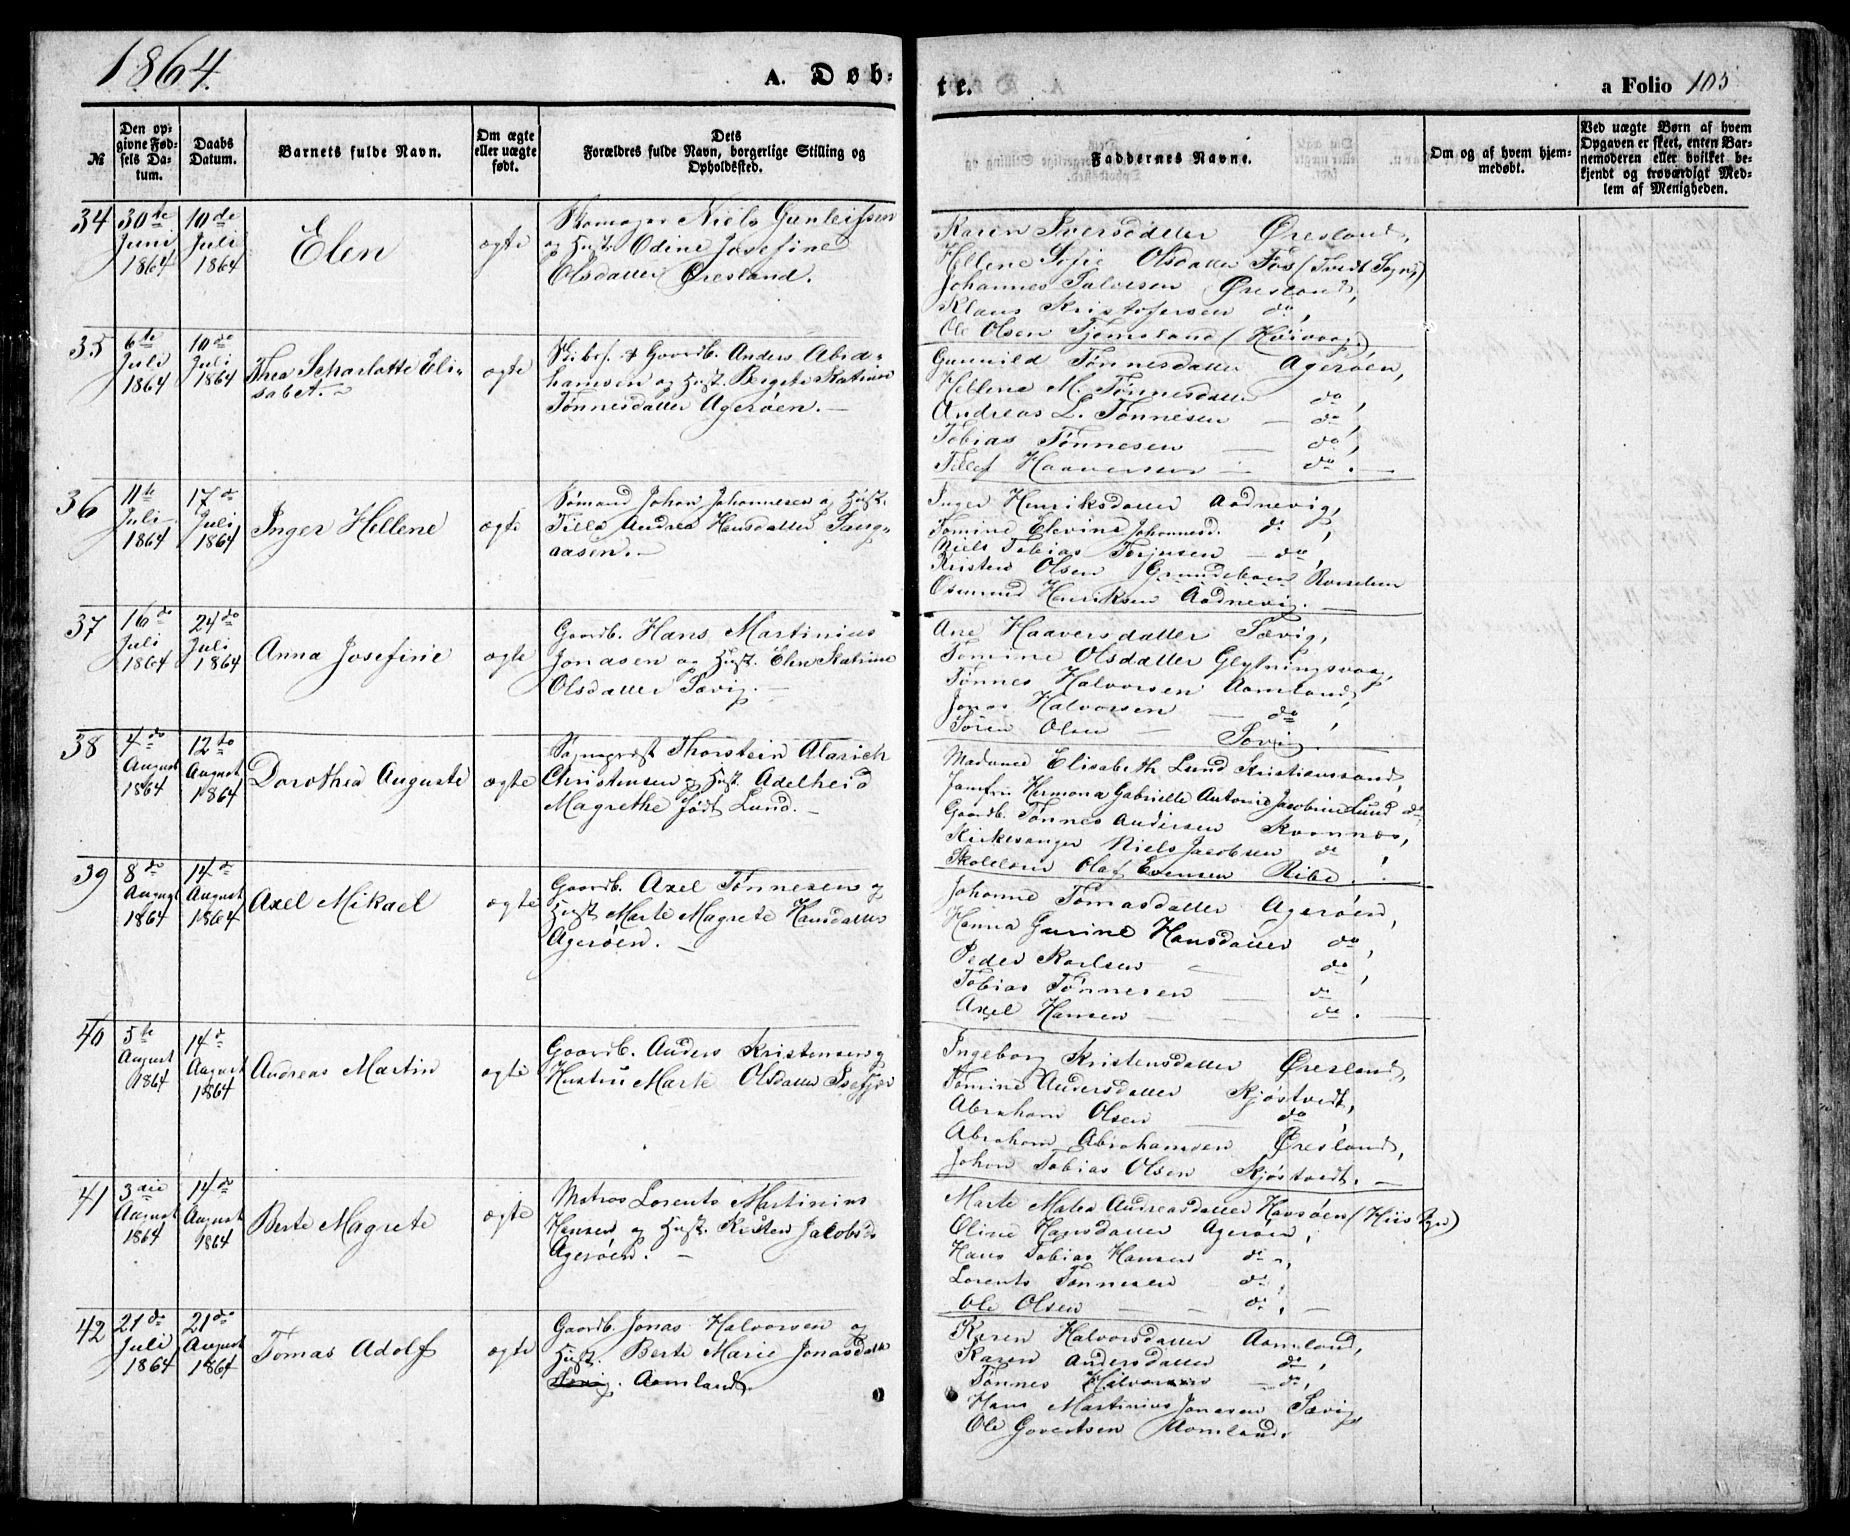 1864.
A. Døb-
te.
a Folio 105
№
Den op-
givne Fød-
sels Da-
tum.
Daabs
Datum.
Barnets fulde Navn.
Om ægte
eller uægte
født.
Dets
Forældres fulde Navn, borgerlige Stilling og
Opholdssted.
Faddernes Navne.
Om og af hvem hjem-
medøbt.
Ved uægte Børn af hvem
Opgaven er skeet, enten Bar-
nemoderen eller hvilket be-
kjendt og troværdigt Med-
lem af Menigheden.
34
30te
Juni
1864
10de
Juli
1864
Elen
ægte
Skomager Niels Gunleifsen
og Hust. Odine Josefine
Olsdatter Øresland.
Karen Iversdatter Øresland,
Hellene Sofie Olsdatter Fos (Tvedt Sogn)
Johannes Salvesen Øresland,
Klaus Kristofersen do,
Ole Olsen Tjomsland (Høivaag)
35
6te
Juli
1864
10de
Juli
1864
Thea Scharlotte Eli-
sabet.
ægte
Skibsf. & Gaardb. Anders Abra-
hamsen og Hust. Bergete Katrine
Tønnesdatter Agerøen.
Gunnild Tønnesdatter Agerøen,
Hellene M. Tønnesdatter do,
Andreas L. Tønnesen do,
Tobias Tønnesen do,
Tellef Haaversen do.
36
11te
Juli
1864
17de
Juli
1864
Inger Hellene
ægte
Sømand Johan Johannesen og Hust.
Tilla Andrea Hansdatter Tang-
aasen.
Inger Henriksdatter Aadnevig,
Tomine Elevine Johannesd. do,
Niels Tobias Terjusen do,
Kristen Olsen
Osmund Henriksen Aadnevig.
37
16de
Juli
1864
24de
Juli
1864
Anna Josefine
ægte
Gaardb. Hans Martinius
Jonasen og Hust. Elen Katrine
Olsdatter Sævig.
Ane Haaversdatter Sævig,
Tomine Olsdatter
Tønnes Halvorsen Aamland,
Jonas Halvorsen do,
Søren Olsen Sævig.
38
4de
August
1864
12te
August
1864
Dorothea Auguste
ægte
Sognepræst Thorstein Alarich
Christensen og Hust. Adelheid
Magrethe født Lund.
Madamed Elisabeth Lund Kristianssand,
Jomfru Hermona Gabrielle Antonie Jacobine Lund do,
Gaardb. Tønnes Andersen Kvannes,
Kirkesanger Niels Jacobsen do,
Skolelærer Olaf Evensen Ribe.
39
8de
August
1864
14de
August
1864
Axel Mikael
ægte
Gaardb. Axel Tønnesen og
Hust. Marte Magrete Hansdatter
Agerøen.
Johanne Tomasdatter Agerøen,
Hanna Gurine Hansdatter do,
Peder Karlsen do,
Tobias Tønnesen do
Axel Hansen do.
40
5te
August
1864
14de
August
1864
Andreas Martin
ægte
Gaardb. Anders Kristensen og
Hustru Marte Olsdatter Isefjær
Ingeborg Kristensdatter Øresland,
Tomine Andersdatter Kjøstvedt,
Abraham Olsen do,
Abraham Abrahamsen Øresland,
Johan Tobias Olsen Kjøstvedt.
41
3die
August
1864
14de
August
1864
Berte Magrete
ægte
Matros Lorents Martinius
Hansen og Hust. Kristen Jacobsd.
Agerøen.
Marte Malea Andreasdatter Havsøen
Oline Hansdatter Agerøen,
Hans Tobias Hansen do,
Lorents Tønnesen do,
Ole Olsen do.
42
21de
Juli
1864
21de
August
1864
Tomas Adolf
ægte
Gaardb. Jonas Halvorsen og
Hust. Berte Marie Jonasdatter
Sævig. Aamland.
Karen Halvorsdatter Aamland,
Karen Andersdatter do,
Tønnes Halvorsen do,
Hans Martinius Jonasen Sævig
Ole Govertsen Aamland.